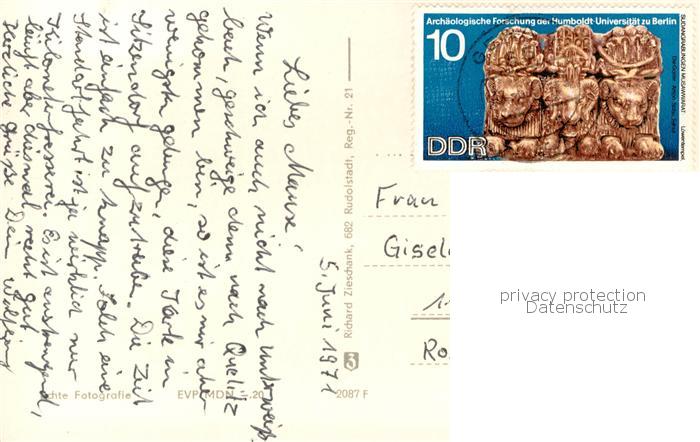 Archäologische Forschung der Humboldt-Universität zu Berlin
10
DDR
SUDANGRABUNGEN MUSAWWARAT
Löwentempel
Liebes Mause,
Wenn ich auch nicht nach Unterweiß-
bach, geschweige denn nach Quelitz
gekommen bin, so ist es mir aber
wenigstens gelungen, diese Karte in
Sitzendorf aufzutreiben. Die Zeit
ist einfach zu knapp. Solch eine
ist ja wirklich nur
Kilometerfresserei. Es ist anstrengend,
läuft aber diesmal recht gut.
Herzliche Grüße Dein Wolfgang
5. Juni 1971
Richard Zieschank, 682 Rudolstadt, Reg.-Nr. 21
Echte Fotografie
EVP MDN -.20
2087 F
Frau
Gisel
1
Ro
privacy protection
Datenschutz